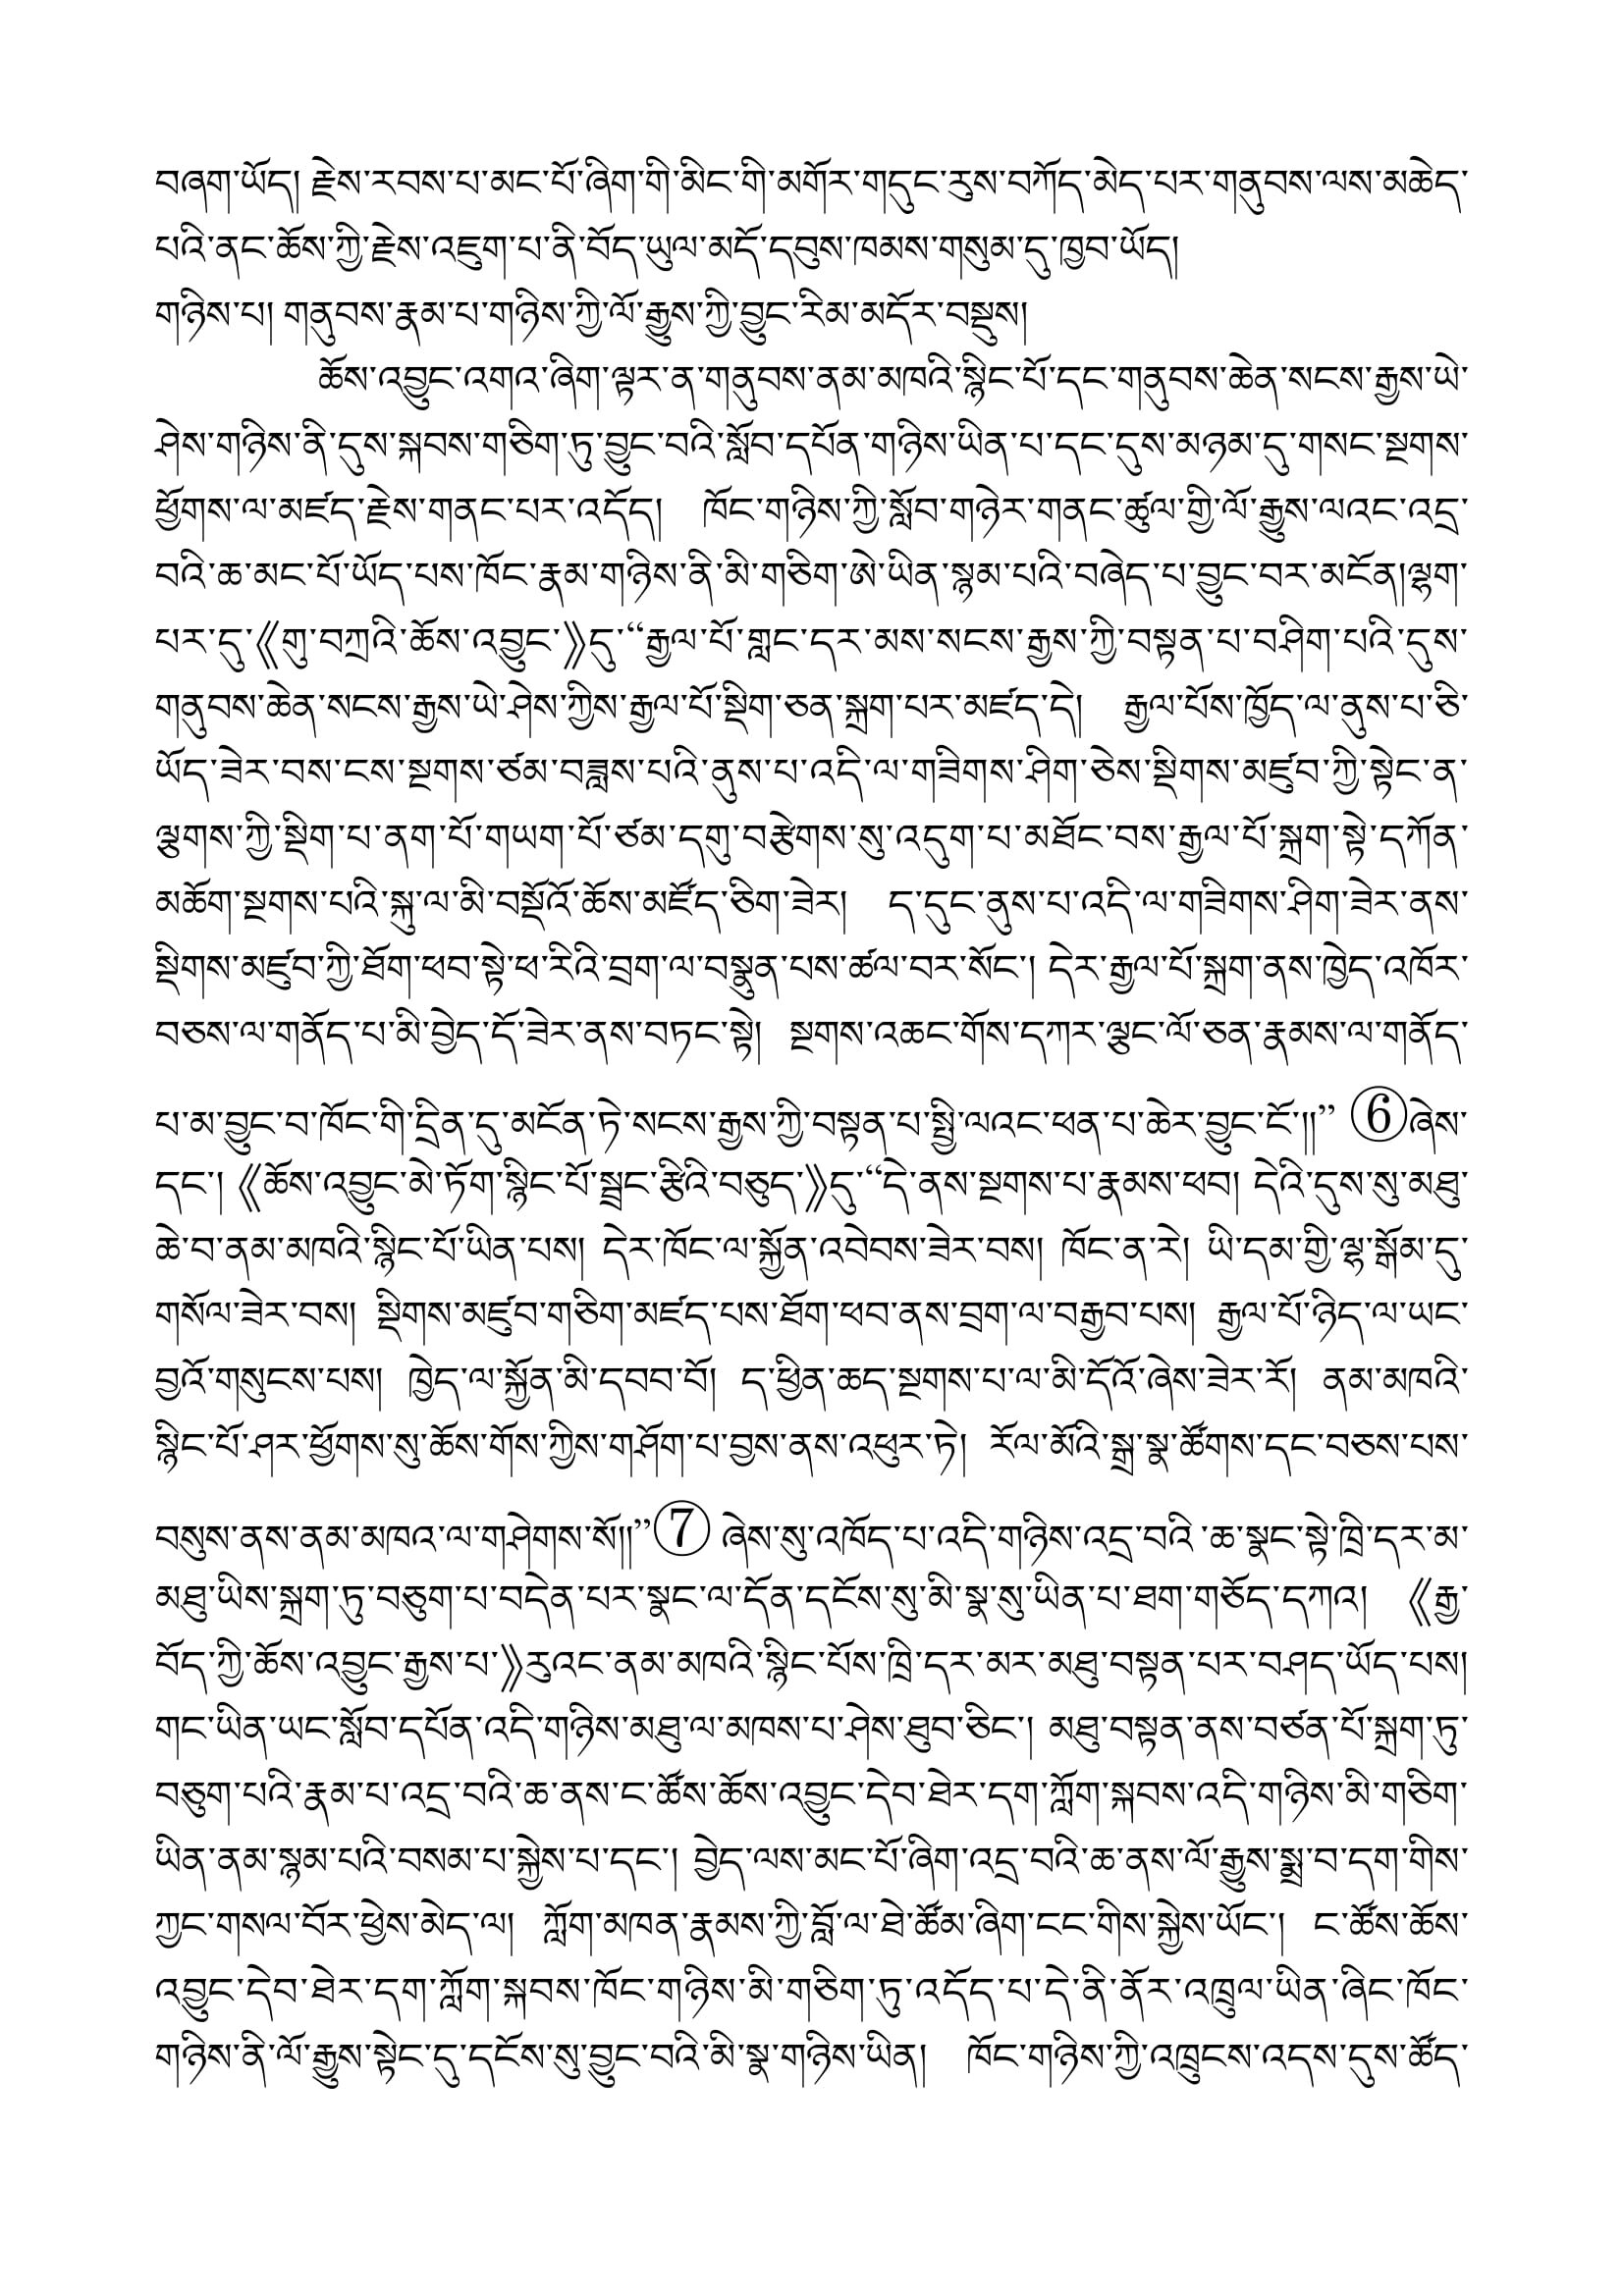 བཞག་ཡོད། རྗེས་རབས་པ་མང་པོ་ཞིག་གི་མིང་གི་མགོར་གདུང་རུས་བཀོད་མེད་པར་གནུབས་ལས་མཆེད་
པའི་ནང་ཆོས་ཀྱི་རྗེས་འཇུག་པ་ནི་བོད་ཡུལ་མདོ་དབུས་ཁམས་གསུམ་དུ་ཁྱབ་ཡོད།
གཉིས་པ། གནུབས་རྣམ་པ་གཉིས་ཀྱི་ལོ་རྒྱུས་ཀྱི་བྱུང་རིམ་མདོར་བསྡུས།
ཆོས་འབྱུང་འགའ་ཞིག་ལྟར་ན་གནུབས་ནམ་མཁའི་སྙིང་པོ་དང་གནུབས་ཆེན་སངས་རྒྱས་ཡེ་
ཤེས་གཉིས་ནི་དུས་སྐབས་གཅིག་ཏུ་བྱུང་བའི་སློབ་དཔོན་གཉིས་ཡིན་པ་དང་དུས་མཉམ་དུ་གསང་སྔགས་
ཕྱོགས་ལ་མཛད་རྗེས་གནང་པར་འདོད། ཁོང་གཉིས་ཀྱི་སློབ་གཉེར་གནང་ཚུལ་གྱི་ལོ་རྒྱུས་ལའང་འདྲ་
བའི་ཆ་མང་པོ་ཡོད་པས་ཁོང་རྣམ་གཉིས་ནི་མི་གཅིག་ཨེ་ཡིན་སྙམ་པའི་བཞེད་པ་བྱུང་བར་མངོན།ལྷག་
པར་དུ་《གུ་བཀྲའི་ཆོས་འབྱུང་》དུ་“རྒྱལ་པོ་གླང་དར་མས་སངས་རྒྱས་ཀྱི་བསྟན་པ་བཤིག་པའི་དུས་
གནུབས་ཆེན་སངས་རྒྱས་ཡེ་ཤེས་ཀྱིས་རྒྱལ་པོ་སྡིག་ཅན་སྐྲག་པར་མཛད་དེ། རྒྱལ་པོས་ཁྱོད་ལ་ནུས་པ་ཅི་
ཡོད་ཟེར་བས་ངས་སྔགས་ཙམ་བཟླས་པའི་ནུས་པ་འདི་ལ་གཟིགས་ཤིག་ཅེས་སྡིགས་མཛུབ་ཀྱི་སྟེང་ན་
ལྕགས་ཀྱི་སྡིག་པ་ནག་པོ་གཡག་པོ་ཙམ་དགུ་བརྩེགས་སུ་འདུག་པ་མཐོང་བས་རྒྱལ་པོ་སྐྲག་སྟེ་དཀོན་
མཆོག་སྔགས་པའི་སྐུ་ལ་མི་བསྡོའོ་ཆོས་མཛོད་ཅིག་ཟེར། ད་དུང་ནུས་པ་འདི་ལ་གཟིགས་ཤིག་ཟེར་ནས་
སྡིགས་མཛུབ་ཀྱི་ཐོག་ཕབ་སྟེ་ཕ་རིའི་བྲག་ལ་བསྣུན་པས་ཚལ་བར་སོང་། དེར་རྒྱལ་པོ་སྐྲག་ནས་ཁྱེད་འཁོར་
བཅས་ལ་གནོད་པ་མི་བྱེད་དོ་ཟེར་ནས་བཏང་སྟེ། སྔགས་འཆང་གོས་དཀར་ལྕང་ལོ་ཅན་རྣམས་ལ་གནོད་
པ་མ་བྱུང་བ་ཁོང་གི་དྲིན་དུ་མངོན་ཏེ་སངས་རྒྱས་ཀྱི་བསྟན་པ་སྤྱི་ལའང་ཕན་པ་ཆེར་བྱུང་ངོ་།།” ⑥ཞེས་
དང་། 《ཆོས་འབྱུང་མེ་ཏོག་སྙིང་པོ་སྦྲང་རྩིའི་བཅུད་》དུ་“དེ་ནས་སྔགས་པ་རྣམས་ཕབ། དེའི་དུས་སུ་མཐུ་
ཆེ་བ་ནམ་མཁའི་སྙིང་པོ་ཡིན་པས། དེར་ཁོང་ལ་སྐྱོན་འབེབས་ཟེར་བས། ཁོང་ན་རེ། ཡི་དམ་གྱི་ལྷ་སྒོམ་དུ་
གསོལ་ཟེར་བས། སྡིགས་མཛུབ་གཅིག་མཛད་པས་ཐོག་ཕབ་ནས་བྲག་ལ་བརྒྱབ་པས། རྒྱལ་པོ་ཉིད་ལ་ཡང་
བྱའོ་གསུངས་པས། ཁྱེད་ལ་སྐྱོན་མི་དབབ་བོ། ད་ཕྱིན་ཆད་སྔགས་པ་ལ་མི་དོའོ་ཞེས་ཟེར་རོ། ནམ་མཁའི་
སྙིང་པོ་ཤར་ཕྱོགས་སུ་ཆོས་གོས་ཀྱིས་གཤོག་པ་བྱས་ནས་འཕུར་ཏེ། རོལ་མོའི་སྒྲ་སྣ་ཚོགས་དང་བཅས་པས་
བསུས་ནས་ནམ་མཁའ་ལ་གཤེགས་སོ།།”⑦ ཞེས་སུ་འཁོད་པ་འདི་གཉིས་འདྲ་བའི་ཆ་སྣང་སྟེ་ཁྲི་དར་མ་
མཐུ་ཡིས་སྐྲག་ཏུ་བཅུག་པ་བདེན་པར་སྣང་ལ་དོན་དངོས་སུ་མི་སྣ་སུ་ཡིན་པ་ཐག་གཅོད་དཀའ། 《རྒྱ་
བོད་ཀྱི་ཆོས་འབྱུང་རྒྱས་པ་》རུའང་ནམ་མཁའི་སྙིང་པོས་ཁྲི་དར་མར་མཐུ་བསྟན་པར་བཤད་ཡོད་པས།
གང་ཡིན་ཡང་སློབ་དཔོན་འདི་གཉིས་མཐུ་ལ་མཁས་པ་ཤེས་ཐུབ་ཅིང་། མཐུ་བསྟན་ནས་བཙན་པོ་སྐྲག་ཏུ་
བཅུག་པའི་རྣམ་པ་འདྲ་བའི་ཆ་ནས་ང་ཚོས་ཆོས་འབྱུང་དེབ་ཐེར་དག་ཀློག་སྐབས་འདི་གཉིས་མི་གཅིག་
ཡིན་ནམ་སྙམ་པའི་བསམ་པ་སྐྱེས་པ་དང་། བྱེད་ལས་མང་པོ་ཞིག་འདྲ་བའི་ཆ་ནས་ལོ་རྒྱུས་སྨྲ་བ་དག་གིས་
ཀྱང་གསལ་བོར་ཕྱེས་མེད་ལ། ཀློག་མཁན་རྣམས་ཀྱི་བློ་ལ་ཐེ་ཚོམ་ཞིག་ངང་གིས་སྐྱེས་ཡོང་། ང་ཚོས་ཆོས་
འབྱུང་དེབ་ཐེར་དག་ཀློག་སྐབས་ཁོང་གཉིས་མི་གཅིག་ཏུ་འདོད་པ་དེ་ནི་ནོར་འཁྲུལ་ཡིན་ཞིང་ཁོང་
གཉིས་ནི་ལོ་རྒྱུས་སྟེང་དུ་དངོས་སུ་བྱུང་བའི་མི་སྣ་གཉིས་ཡིན། ཁོང་གཉིས་ཀྱི་འཁྲུངས་འདས་དུས་ཚོད་